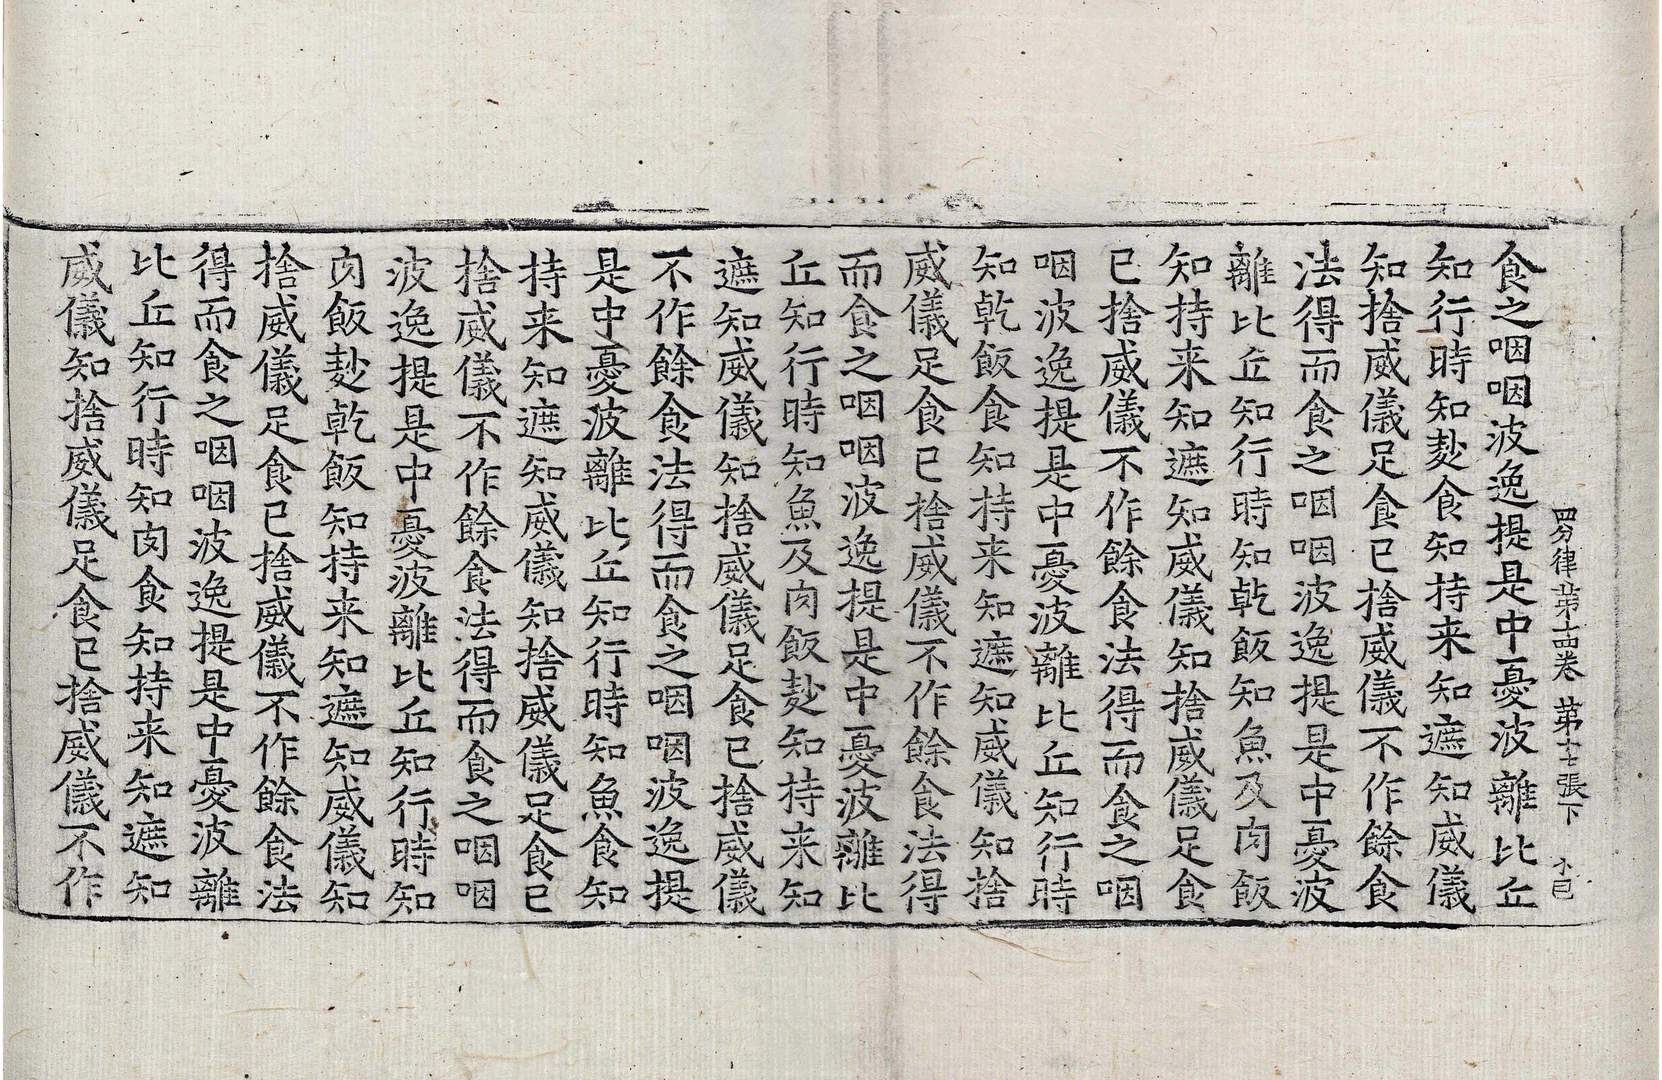 四分律第十四卷 第十七張下
食之咽咽波逸提是中憂波離比丘
知行時知麨食知持来知遮知威儀
知捨威儀足食已捨威儀不作餘食
法得而食之咽咽波逸提是中憂波
離比丘知行時知乾飯知魚及肉飯
知持来知遮知威儀知捨威儀足食
已捨威儀不作餘食法得而食之咽
咽波逸提是中憂波離比丘知行時
知乾飯食知持来知遮知威儀知捨
威儀足食已捨威儀不作餘食法得
而食之咽咽波逸提是中憂波離比
丘知行時知魚及肉飯麨知持来知
遮知威儀知捨威儀足食已捨威儀
不作餘食法得而食之咽咽波逸提
是中憂波離比丘知行時知魚食知
持来知遮知威儀知捨威儀足食已
捨威儀不作餘食法得而食之咽咽
波逸提是中憂波離比丘知行時知
肉飯麨乾飯知持来知遮知威儀知
捨威儀足食已捨威儀不作餘食法
得而食之咽咽波逸提是中憂波離
比丘知行時知肉食知持来知遮知
威儀知捨威儀足食已捨威儀不作